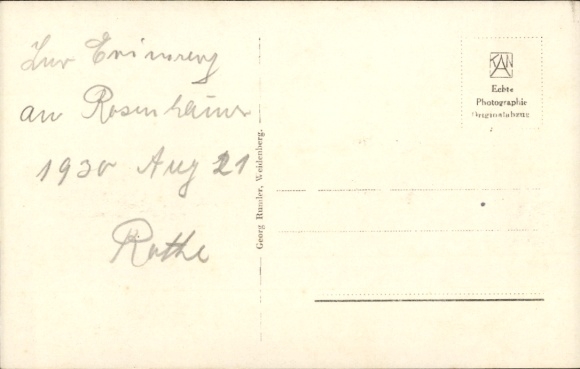 Zur Erinnerug
an Rosenhämer
1930 Aug 21
Rothe
Georg Rumler, Weidenberg.
KAN
Echte
Photographie
Originalabzug